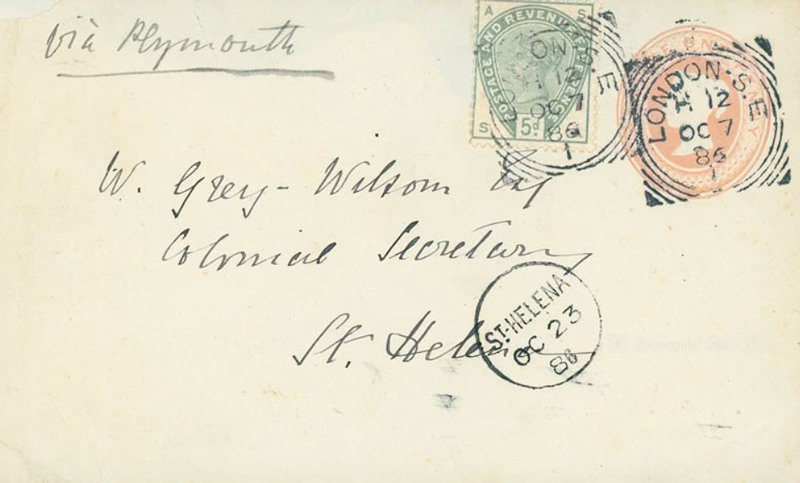 via Plymouth
A S
POSTAGE AND REVENUE
5d
S A
LONDON·S.E
12
OC 7
86
1
LONDON·S.E
12
OC 7
86
1
W. Grey-Wilson Esq
Colonial Secretary
St. Helena
ST·HELENA
OC 23
86